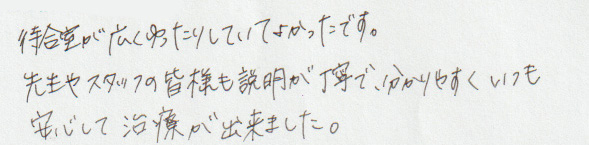 待合室が広くゆったりしていてよかったです。
先生やスタッフの皆様も説明が丁寧で、分かりやすくいつも
安心して治療が出来ました。